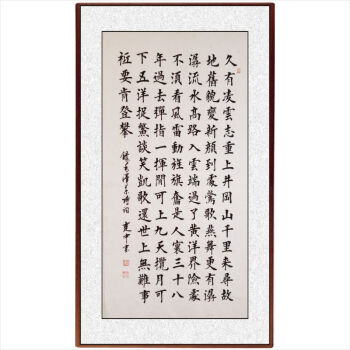 久有凌雲志重上井岡山千里来尋故
地舊貌變新顏到處鶯歌燕舞更有潺
潺流水高路入雲端過了黄洋界險處
不須看風雷動旌旗奮是人寰三十八
年過去彈指一揮間可上九天攬月可
下五洋捉鱉談笑凱歌還世上無難事
祗要肯登攀 錄毛澤东诗词 中書